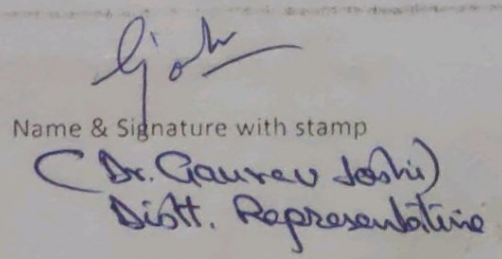 Gjosh
Name & Signature with stamp
(Dr. Gaurav Joshi)
Distt. Representative